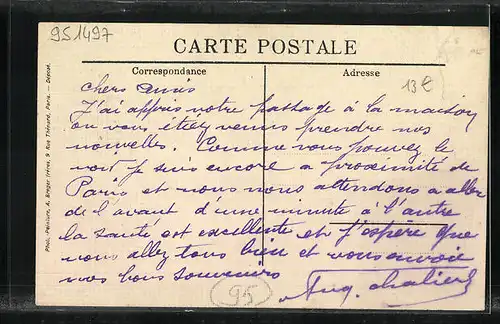 951497
CARTE POSTALE
Correspondance
Adresse
13€
chers Amis
J'ai appris votre passage à la maison
ou vous étiez venus prendre nos
nouvelles. Comme vous pouvez le
voir je suis encore a proximité de
Paris et nous nous attendons a aller
de l'avant d'une minute à l'autre
la santé est excellente et j'espère que
vous allez tous bien et vous envoie
mes bons souvenirs
Aug. Chalier
95
Phot.-Peinture, A. Breger frères, 9 Rue Thénard, Paris. — Déposé.